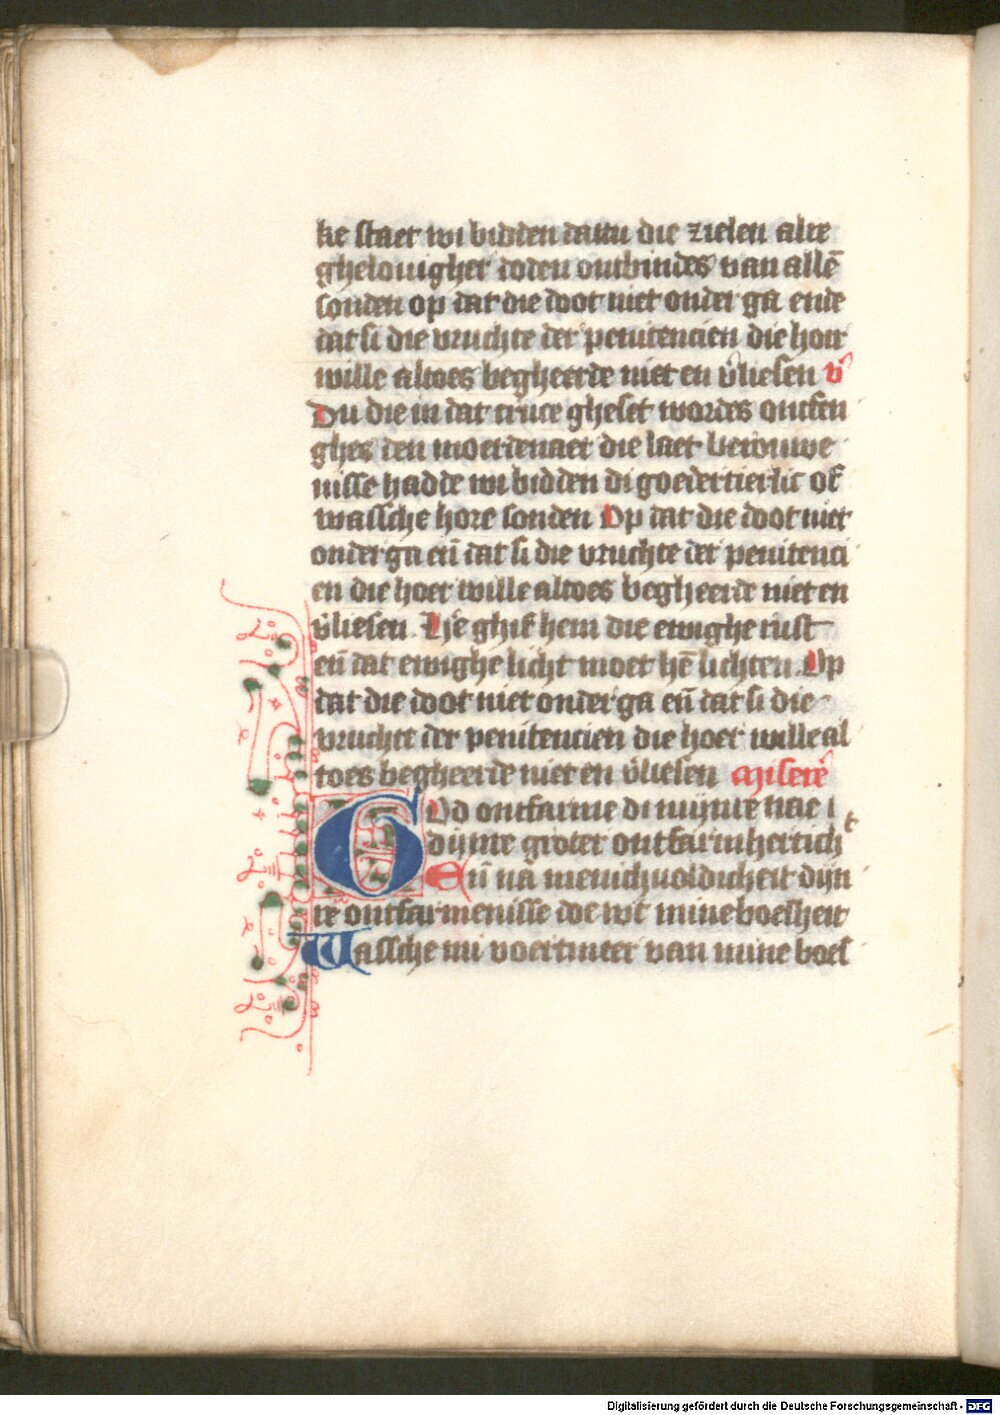 ke staet wi bidden dattu die zielen alre
ghelouigher doden ontbindes van allē
sonden op dat die doot niet onder ga ende
dat si die vruchte der penitencien die hoer
wille altoes begheerde niet en v̄liesen v̄
Du die in dat cruce gheset wordes ontfen
ghes den moerdenaer die laet berouwe
nisse hadde wi bidden di goedertierlic of
wassche hore sonden Op dat die doot niet
onder ga eñ dat si die vruchte der penitenci
en die hoer wille altoes begheerde niet en
v̄liesen. Hē ghif hem die ewighe rust
eñ dat ewighe licht moet hē lichten. Op
dat die doot niet onder ga eñ dat si die
vruchte der penitencien die hoer wille al
toes begheerde niet en v̄liesen Miserē
God ontfarme di mijnre nae
dijnre groter ontfarmherticht
Eñ nā menichuoldicheit dijn
re ontfarmenisse doe wt mine boesheit
Wassche mi voertmeer van mine boes
Digitalisierung gefördert durch die Deutsche Forschungsgemeinschaft - DFG